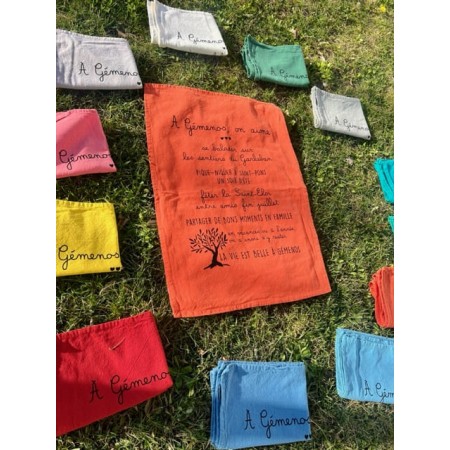 A Gémenos
A Gémenos
A Gémenos
A Gémenos
A Gémenos, on aime
se balader sur
les sentiers du Garlaban
PIQUE-NIQUER À SAINT-PONS
UN SOIR D'ÉTÉ
fêter la Saint Eloi
entre amis fin juillet
PARTAGER DE BONS MOMENTS EN FAMILLE
LA VIE EST BELLE À GÉMENOS
A Gémenos
A Gémenos
A Gémenos
A Gémenos
A Gém